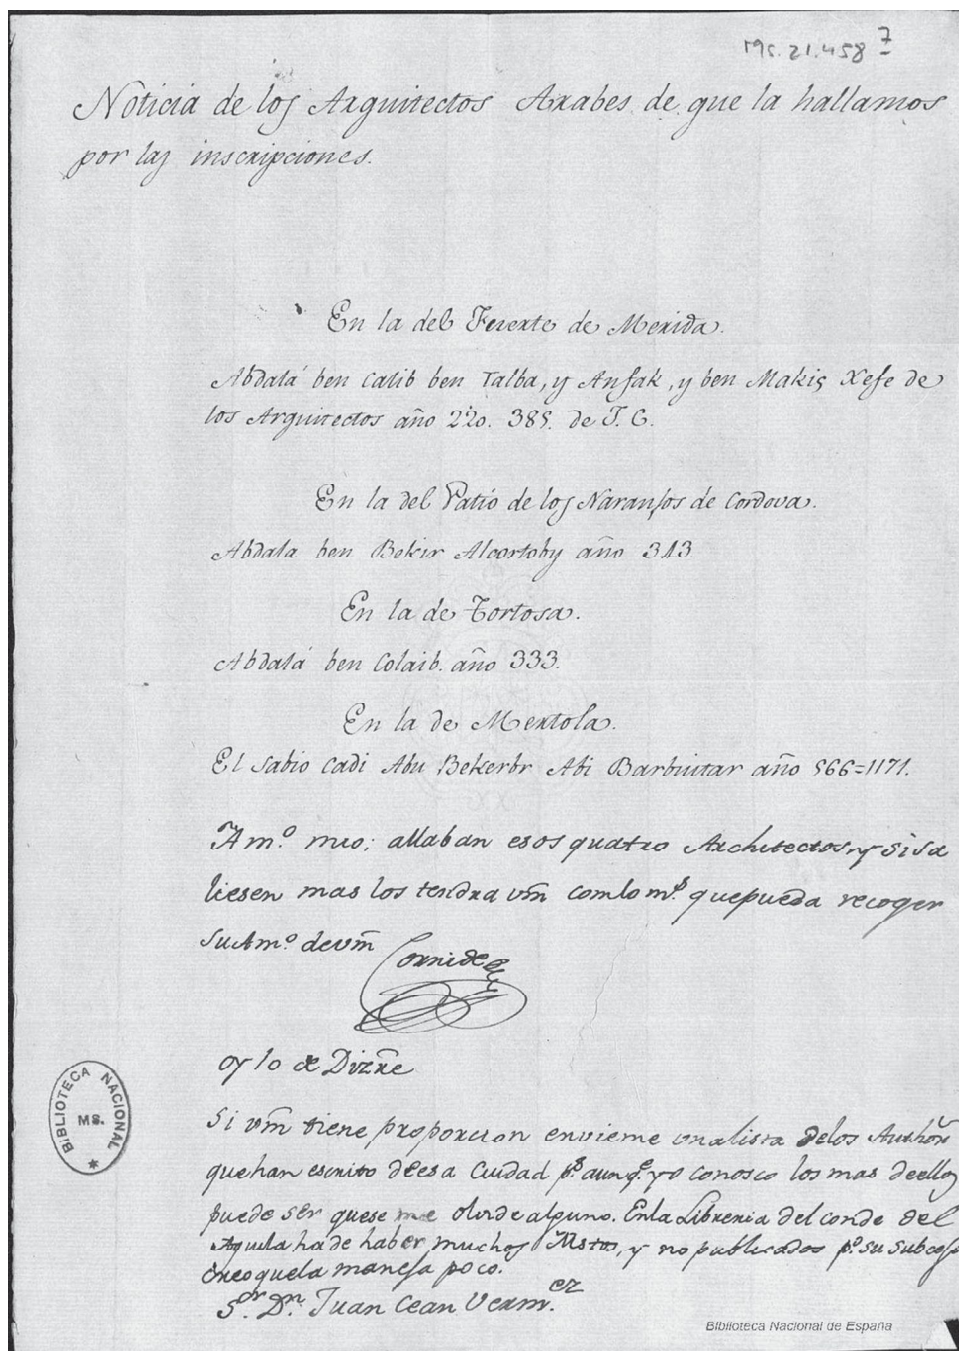 Ms. 21.458 7
Noticia de los Arquitectos Arabes de que la hallamos
por las inscripciones.
En la del Fuerte de Merida.
Abdalá ben Calib ben Talba, y Anfak, y ben Makis Xefe de
los Arquitectos año 220. 385. de J. C.
En la del Patio de los Naranjos de Cordova.
Abdala ben Bekir Alcortoby año 313
En la de Tortosa.
Abdalá ben Colaib. año 333.
En la de Mertola.
El sabio Cadi Abu Bekerbr Abi Barbuitar año 566=1171.
Am.o mio: allaban esos quatro Architectos, y si sa
liesen mas los tendra vm̃ comlo m.s que pueda recoger
su Am.o de vm̃ Cornide
oy 10 de Dizre
Si vm̃ tiene proporcion envieme una lista de los Authõr
que han escrito de esa Ciudad p.s aunq.e yo conosco los mas de ellos
puede ser que se me olvide alguno. En la Libreria del conde del
Aguila ha de haber muchos Mstos, y no publicados p.o su subceso
Creo que la maneja poco.
S.or D.n Juan Cean Verm.ez
BIBLIOTECA NACIONAL
MS.
Biblioteca Nacional de España